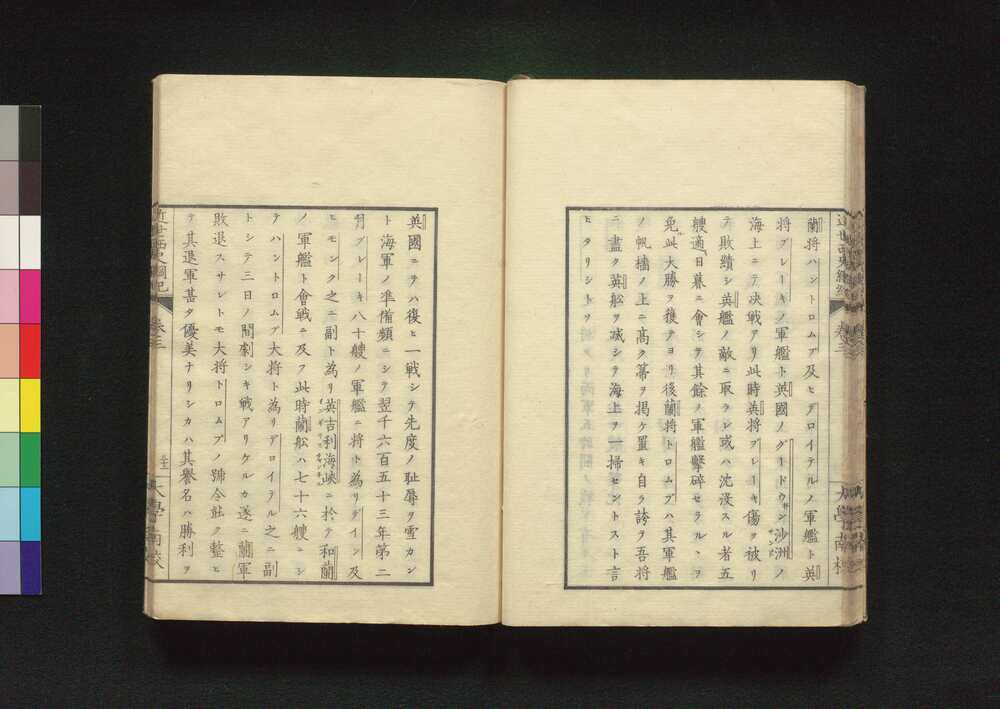 蘭将ハントロムプ及ヒデロイテルノ軍艦ト英
将ブレーキノ軍艦ト英國ノグードウヰン沙洲ノ
海上ニテ决戦アリ此時英将ブレーキ傷ヲ被リ
テ敗績シ英艦ノ敵ニ取ラレ或ハ沈没スル者五
艘適日暮ニ會シテ其餘ノ軍艦擊碎セラルヽヲ
免此大勝ヲ獲テヨリ後蘭将トロムプハ其軍艦
ノ帆檣ノ上ニ高ク箒ヲ掲ケ置キ自ラ誇ラ吾将
ニ盡ク英舩ヲ滅シテ海上ヲ一掃セントスト言
ヒタリシトヲ
英國ニテハ復ヒ一戦シテ先度ノ耻辱ヲ雪カン
ト海軍ノ准備頻ニシテ翌千六百五十三年第二
月ブレーキ八十艘ノ軍艦ニ将ト為リデイン及
ヒモンク之ニ副ト為リ英吉利海峡ニ於テ和蘭
ノ軍艦ト會戦ニ及フ此時蘭舩ハ七十六艘ニシ
テハントロムプ大将ト為リデロイテル之ニ副
トシテ三日ノ間劇シキ戦アリケルカ遂ニ蘭軍
敗退スサレトモ大将トロムプノ號令能ク整ヒ
テ其退軍甚タ優美ナリシカハ其譽名ハ勝利ヲ
近世西史綱紀
卷三
大學南校